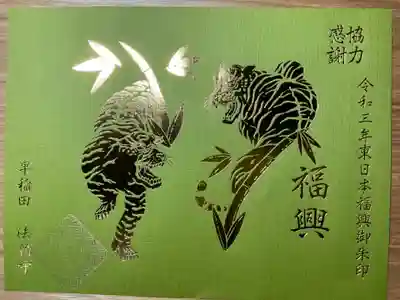 協力
感謝
令和三年東日本福興御朱印
福興
早稲田 法竹寺